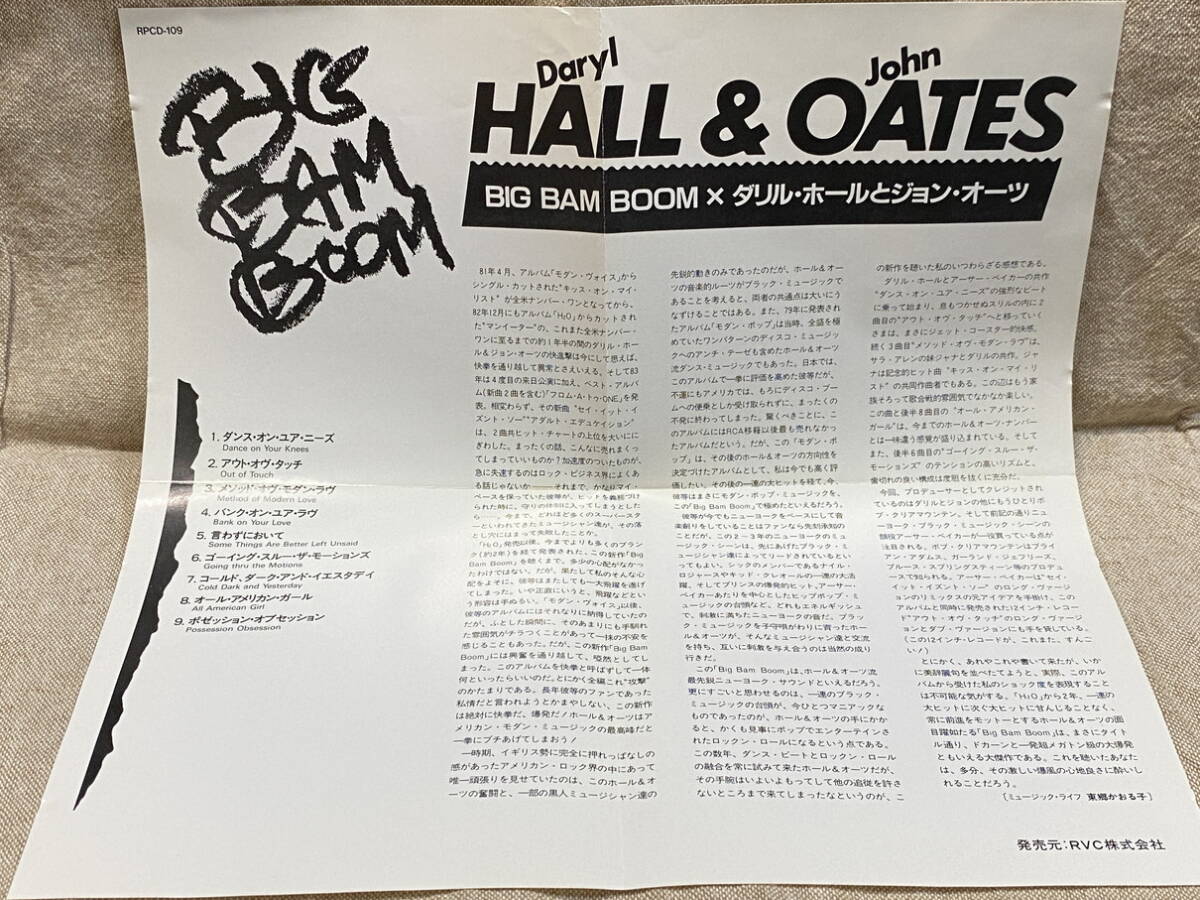 RPCD-109
BIG
BAM
BOOM
Daryl John
HALL & OATES
BIG BAM BOOM × ダリル・ホールとジョン・オーツ
1. ダンス・オン・ユア・ニーズ
Dance on Your Knees
2. アウト・オヴ・タッチ
Out of Touch
3. メソッド・オヴ・モダン・ラヴ
Method of Modern Love
4. バンク・オン・ユア・ラヴ
Bank on Your Love
5. 言わずにおいて
Some Things Are Better Left Unsaid
6. ゴーイング・スルー・ザ・モーションズ
Going thru the Motions
7. コールド、ダーク・アンド・イエスタデイ
Cold Dark and Yesterday
8. オール・アメリカン・ガール
All American Girl
9. ポゼッション・オブセッション
Possession Obsession
81年4月、アルバム「モダン・ヴォイス」から
シングル・カットされた"キッス・オン・マイ・
リスト"が全米ナンバー・ワンとなってから、
82年12月にもアルバム「H₂O」からカットされ
た"マンイーター"の、これまた全米ナンバー・
ワンに至るまでの約1年半の間のダリル・ホー
ル&ジョン・オーツの快進撃は今にして思えば、
快挙を通り越して異常とさえいえる、そして83
年は4度目の来日公演に加え、ベスト・アルバ
ム(新曲2曲を含む)「フロム・A・トゥ・ONE」を発
表。相変わらず、その新曲"セイ・イット・イ
ズント・ソー""アダルト・エデュケイション"
は、2曲共ヒット・チャートの上位を大いにに
ぎわした。まったくの話、こんなに売れまくっ
てしまっていいものか?加速度のついたものが、
急に失速するのはロック・ビジネス界によくあ
る話じゃないか——それまで、かなりマイ・
ペースを保っていた彼等が、ヒットを義務づけ
られた時に、守りの体制に入ってしまうとした
ら……。今まで、どれほど多くのスーパースタ
ーといわれてきたミュージシャン達が、その落
とし穴にはまって失敗したことか。
「H₂O」発売以後、今までよりも多くのブラン
ク(約2年)を経て発表された、この新作「Big
Bam Boom」を聴くまで、多少の心配がなかっ
たわけではない。だが、果たして私のそんな心
配をよそに、彼等はまたしても一大飛躍を遂げ
てしまった。いや正直にいうと、飛躍などとい
う形容は手ぬるい。「モダン・ヴォイス」以後、
彼等のアルバムにはそれなりに納得していたの
だが、ふとした瞬間に、そのあまりにも手馴れ
た雰囲気がチラつくことがあって一抹の不安を
感じることもあった。だが、この新作「Big Bam
Boom」には興奮を通り越して、啞然としてし
まった。このアルバムを快挙と呼ばずして一体
何といったらいいのだ。とにかく全編これ"攻撃"
のかたまりである。長年彼等のファンであった
私情だと言われようとかまやしない、この新作
は絶対に快挙だ、爆発だ!ホール&オーツはア
メリカン・モダン・ミュージックの最高峰だと
一挙にブチあげてしまおう!
一時期、イギリス勢に完全に押れっぱなしの
感があったアメリカン・ロック界の中にあって
唯一頑張りを見せていたのは、このホール&オ
ーツの奮闘と、一部の黒人ミュージシャン達の
先鋭的動きのみであったのだが、ホール&オー
ツの音楽的ルーツがブラック・ミュージックで
あることを考えると、両者の共通点は大いにう
なずけることではある。また、79年に発表され
たアルバム「モダン・ポップ」は当時、全語を極
めていたワンパターンのディスコ・ミュージッ
クへのアンチ・テーゼも含めたホール&オーツ
流ダンス・ミュージックでもあった。日本では、
このアルバムで一挙に評価を高めた彼等だが、
不運にもアメリカでは、もろにディスコ・ブー
ムへの便乗としか受け取られずに、まったくの
不発に終わってしまった。驚くべきことに、こ
のアルバムにはRCA移籍以後最も売れなかっ
たアルバムだという。だが、この「モダン・ポ
ップ」は、その後のホール&オーツの方向性を
決定づけたアルバムとして、私は今でも高く評
価したい。その後の一連の大ヒットを経て、今、
彼等はまさにモダン・ポップ・ミュージックを、
この「Big Bam Boom」で極めたといえるだろう。
彼等が今でもニューヨークをベースにして音
楽創りをしていることはファンなら先刻承知の
ことだが、この2〜3年のニューヨークのミュ
ージック・シーンは、先にあげたブラック・ミ
ュージシャン達によってリードされているとい
ってもよい。シックのメンバーであるナイル・
ロジャースやキッド・クレオールの一連の大活
躍、そしてプリンスの爆発的ヒット、アーサー・
ベイカーあたりを中心としたヒップポップ・ミ
ュージックの台頭など、どれもエネルギッシュ
で、刺激に満ちたニューヨークの音だ。ブラッ
ク・ミュージックを子守唄がわりに育ったホー
ル&オーツが、そんなミュージシャン達と交流
を持ち、互いに刺激を与え合うのは当然の成り
行きだ。
この「Big Bam Boom」は、ホール&オーツ流
最先鋭ニューヨーク・サウンドといえるだろう。
更にすごいと思わせるのは、一連のブラック・
ミュージックの台頭が、今ひとつマニアックな
ものであったのが、ホール&オーツの手にかか
ると、かくも見事にポップでエンターテインさ
れたロックン・ロールになるという点である。
この数年、ダンス・ビートとロックン・ロール
の融合を常に試みて来たホール&オーツだが、
その手腕はいよいよもってして他の追従を許さ
ないところまで来てしまったなというのが、こ
の新作を聴いた私のいつわらざる感想である。
ダリル・ホールとアーサー・ベイカーの共作
"ダンス・オン・ユア・ニーズ"の強烈なビート
に乗って始まり、息もつかせぬスリルの内に2
曲目の"アウト・オヴ・タッチ"へと移っていく
さまは、まさにジェット・コースター的快感。
続く3曲目"メソッド・オヴ・モダン・ラヴ"は、
サラ・アレンの妹ジャナとダリルの共作。ジャ
ナは記念的ヒット曲"キッス・オン・マイ・リ
スト"の共同作曲者でもある。この辺はもう家
族そろって歌合戦的雰囲気でなかなか楽しい。
この曲と後半8曲目の"オール・アメリカン・
ガール"は、今までのホール・オーツ・ナンバー
とは一味違う感覚が盛り込まれている。そして
また、後半6曲目の"ゴーイング・スルー・ザ・
モーションズ"のテンションの高いリズムと、
歯切れの良い構成は度胆を抜くに充分だ。
今回、プロデューサーとしてクレジットされ
ているのはダリルとジョンの他にもうひとりボ
ブ・クリアマウンテン、そして前記の通りニュ
ーヨーク・ブラック・ミュージック・シーンの
顔役アーサー・ベイカーが一役買っている点が
注目される。ボブ・クリアマウンテンはブライ
アン・アダムス、ガーランド・ジェフリーズ、
ブルース・スプリングスティーン等のプロデュ
ースで知られる。アーサー・ベイカーは"セイ・
イット・イズント・ソー"のロング・ヴァージ
ョンのリミックスの元アイデアを手掛け、この
アルバムと同時に発売された12インチ・レコー
ド"アウト・オヴ・タッチ"のロング・ヴァージ
ョンとダブ・ヴァージョンにも手を貸している。
(この12インチ・レコードが、これまた、すんご
い!)
とにかく、あれやこれや書いて来たが、いか
に美辞麗句を並べたてようと、実際、このアル
バムから受けた私のショック度を表現すること
は不可能な気がする。「H₂O」から2年、一連の
大ヒットに次ぐ大ヒットに甘んじることなく、
常に前進をモットーとするホール&オーツの面
目躍如たる「Big Bam Boom」は、まさにタイト
ル通り、ドカーンと一発超メガトン級の大爆発
ともいえる大傑作である。これを聴いたあなた
は、多分、その激しい爆風の心地良さに酔いし
れることだろう。
〔ミュージック・ライフ 東郷かおる子〕
発売元:RVC株式会社